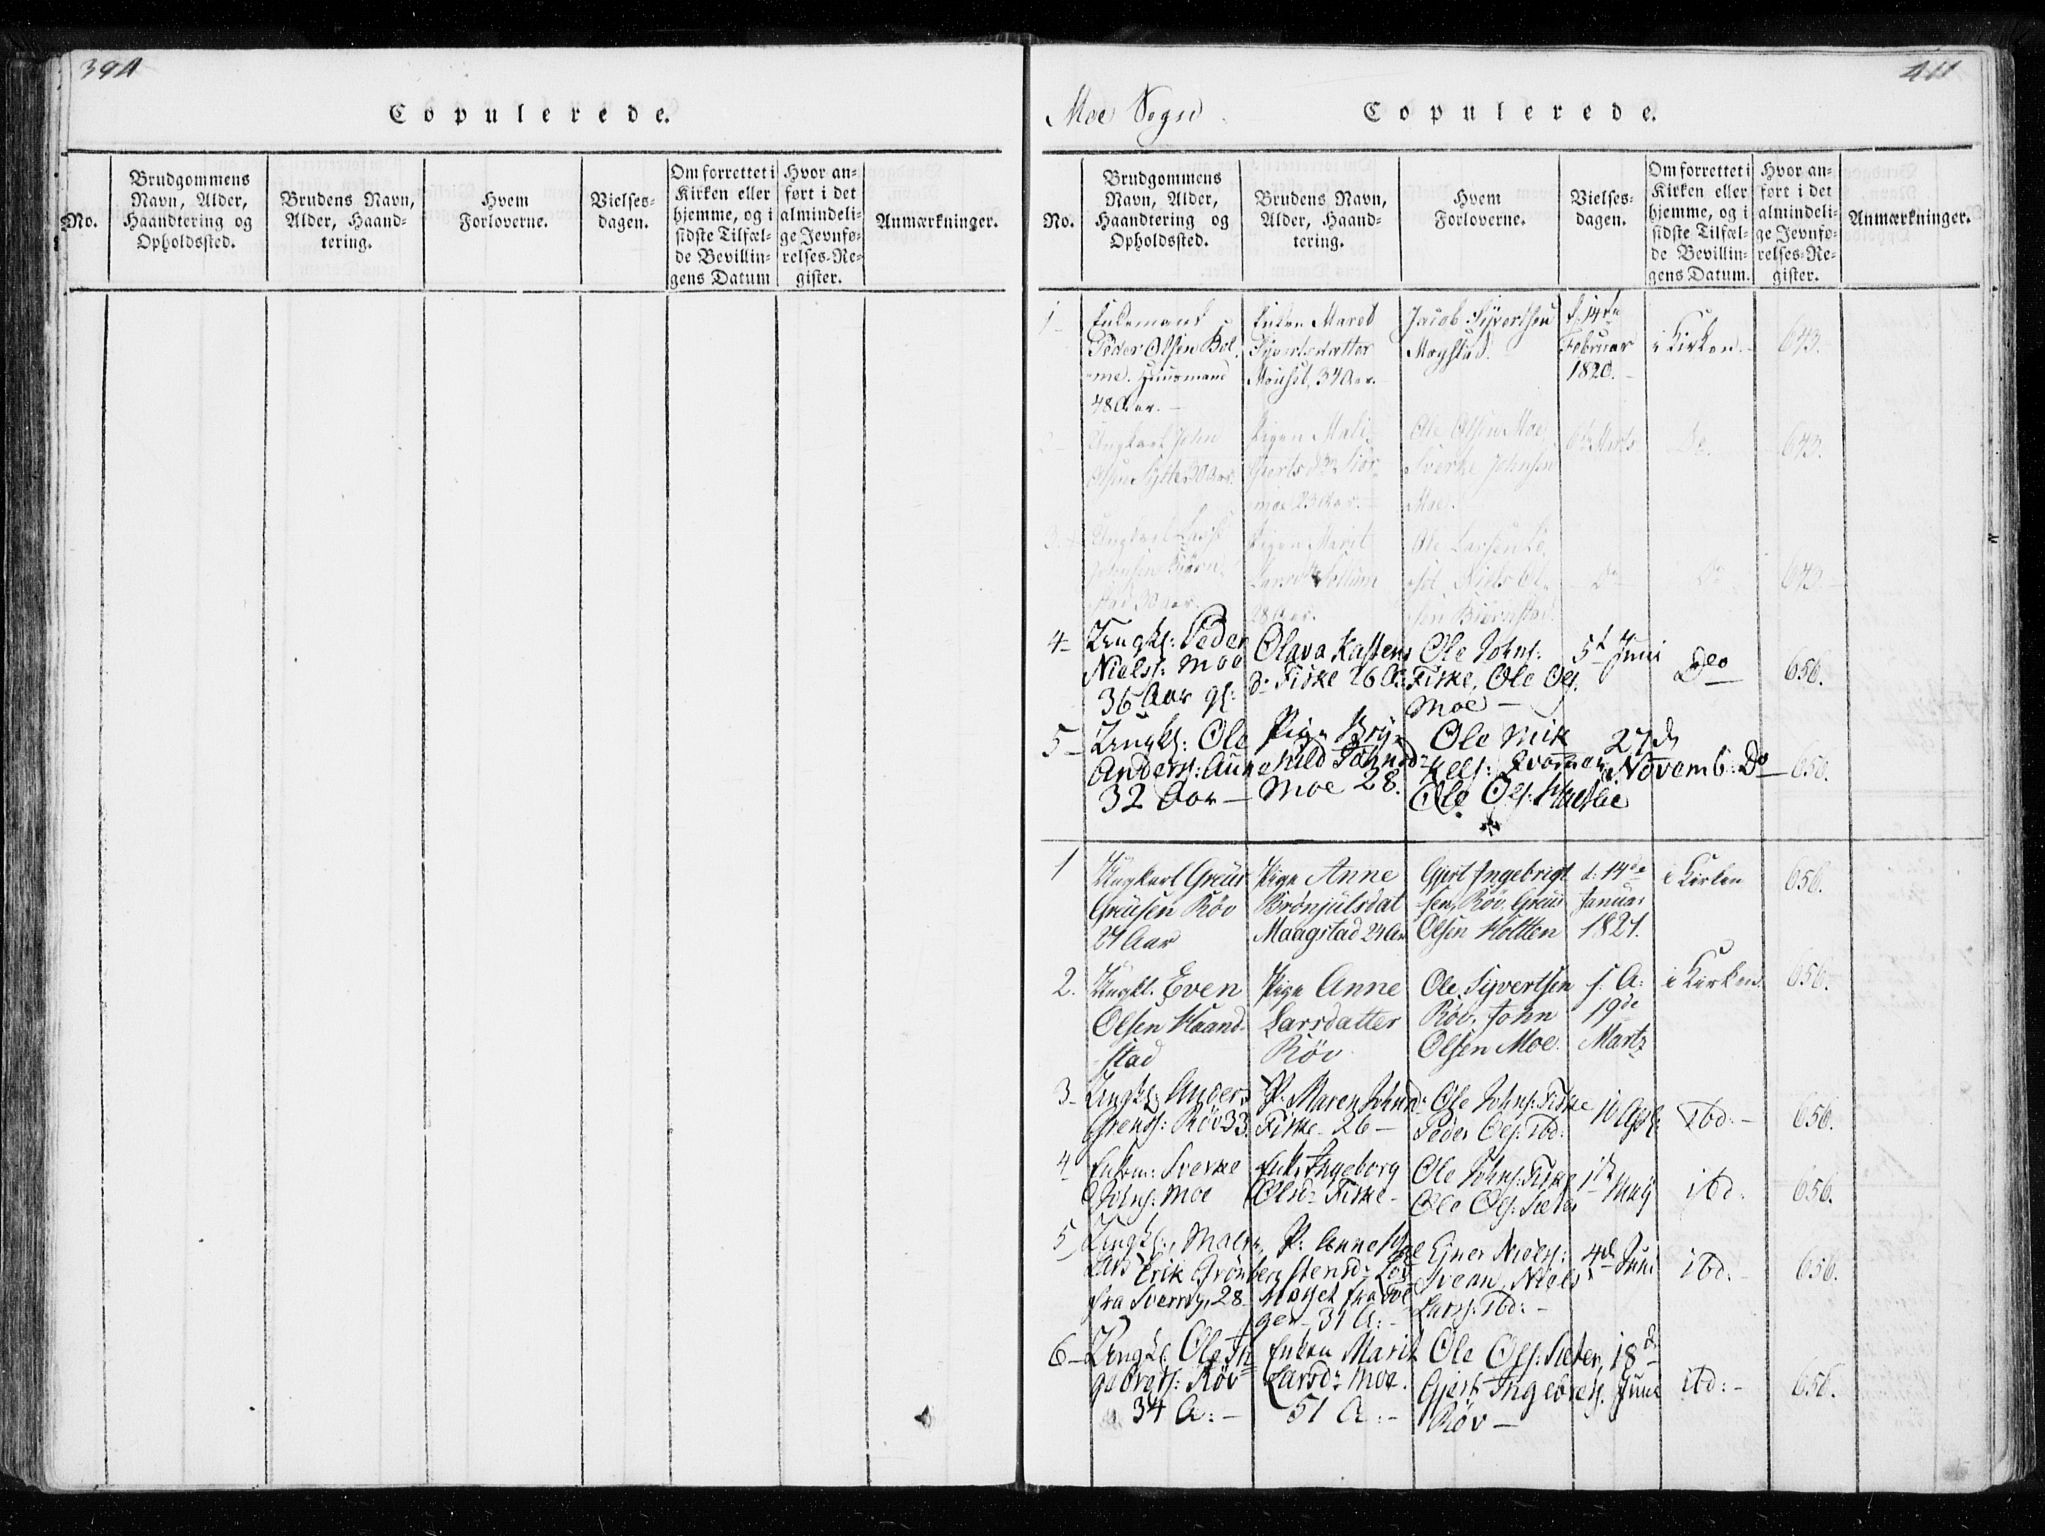 394
Copulerede.
No.
Brudgommens
Navn, Alder,
Haandtering og
Opholdssted.
Brudens Navn,
Alder, Haand-
tering.
Hvem
Forloverne.
Vielses-
dagen.
Om forrettet i
Kirken eller
hjemme, og i
sidste Tilfæl-
de Bevillin-
gens Datum
Hvor an-
ført i det
almindeli-
ge Jevnfø-
relses-Re-
gister.
Anmærkninger.
411
Moe Sogn
Copulerede.
No.
Brudgommens
Navn, Alder,
Haandtering og
Opholdssted.
Brudens Navn,
Alder, Haand-
tering.
Hvem
Forloverne.
Vielses-
dagen.
Om forrettet i
Kirken eller
hjemme, og i
sidste Tilfæl-
de Bevillin-
gens Datum.
Hvor an-
ført i det
almindeli-
ge Jevnfø-
relses-Re-
gister.
Anmærkninger.
1
Enkemand
Peder Olsen Böl-
me. Huusmand
48 Aar.
Enken Maret
Syvertsdatter
34 Aar.
Jacob Syvertsen
Magstad.
d. 14de
Februar
1820.
i Kirken.
643.
2
Ungkarl John
Olsen 30 Aar.
Pigen Mali
Gjertsd
moe 23 Aar.
Ole Olsen Moe,
Sverke Johnsen
Moe.
6te Marts
Do.
643.
3.
Ungkarl Lars
Johnsen Biörn-
stad 30 Aar.
Pigen Marit
Larsd
28 Aar.
Ole Larsen
Niels Ol-
sen Biörnstad
Do
Do
643
4
Ungk: Peder
Niels: Moe
36 Aar gl:
Olava Kastens
d: Fiske 26 A:
Ole Johns:
Fiske, Ole Ols.
Moe
5t Juni
Deo
656.
5
Ungk: Ole
Anders: Aune
32 Aar
Pige Brÿ-
nild Johnsd:
Moe 28.
Ole Mik
kels:
Ole Ols:
27de
Novemb:
Do
656.
1
Ungkarl Greüs
Greüsen Röv
24 Aar
Pige Anne
Brønjulsdat
Maagstad 24 Aar
Gjert Ingebrigt
sen, Röv, Greüs
Olsen Holtten
d. 14de
Januar
1821.
i Kirken
656.
2.
Ungkl. Even
Olsen Haand-
stad
Pige Anne
Larsdatter
Röv
Ole Syvertsen
Röv, John
Olsen Moe.
s. A:
19de
Martz
i Kirken.
656.
3
Ungk: Anders
Grends: Röv 33
P: Maren Johnsd:
Fiske 26
Ole Johns: Fiske
Peder Ols: ibd:
10 Apr:
ibd:
656.
4
Enkem: Sverke
Johns: Moe
Enke Ingeborg
Olsd: Fiske
Ole Johns: Fiske
Ole Ols: Sæter
1de Maÿ
ibd:
656.
5
Ungk:, Maler
Lars Erik Grönberg
fra Sverrig, 28
P: Anne
stensd:
fra
ger 31 A:
Ejner Niels:
Svean, Niels
Lars: ibd:
4de Juni
ibd:
656.
6
Ungk. Ole In-
gebregts: Röv
34 A:
Enken Marit
Larsd: Moe.
51 A:
Ole Ols: Sæter,
Gjert Ingebregs.
Röv
18de
Juni
ibd:
656.